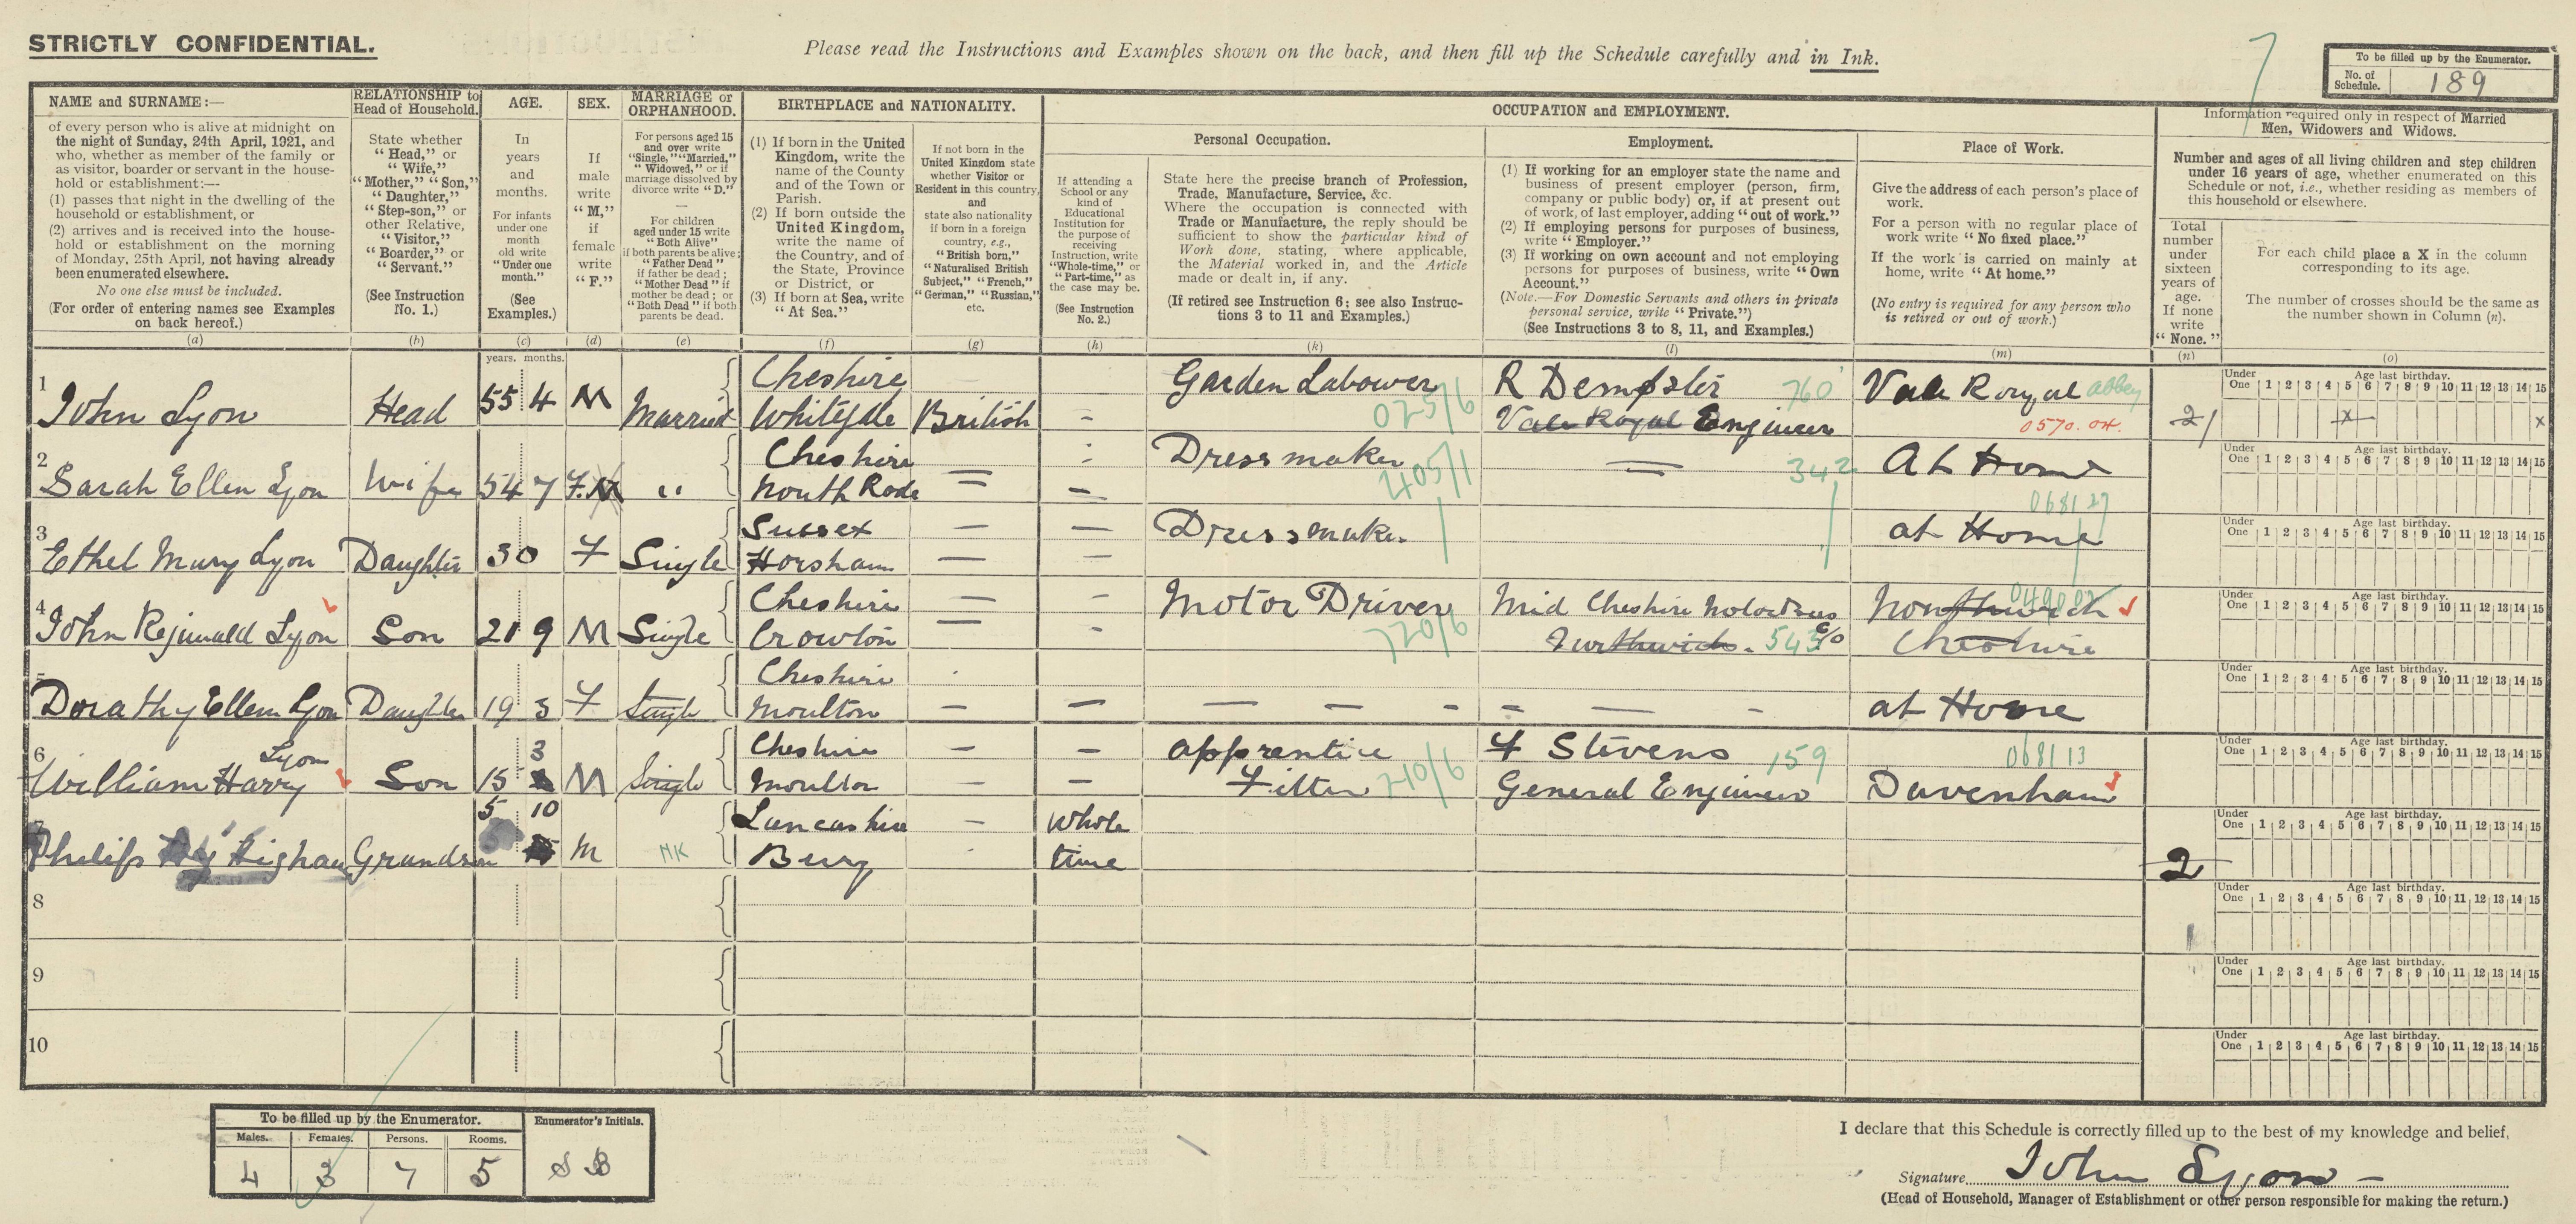 STRICTLY CONFIDENTIAL.
Please read the Instructions and Examples shown on the back, and then fill up the Schedule carefully and in Ink.
7
To be filled up by the Enumerator.
No. of Schedule. 189
NAME and SURNAME:—
of every person who is alive at midnight on
the night of Sunday, 24th April, 1921, and
who, whether as member of the family or
as visitor, boarder or servant in the house-
hold or establishment:—
(1) passes that night in the dwelling of the
household or establishment, or
(2) arrives and is received into the house-
hold or establishment on the morning
of Monday, 25th April, not having already
been enumerated elsewhere.
No one else must be included.
(For order of entering names see Examples
on back hereof.)
(a)
RELATIONSHIP to
Head of Household.
State whether
"Head," or
"Wife,"
"Mother," "Son,"
"Daughter,"
"Step-son," or
other Relative,
"Visitor,"
"Boarder," or
"Servant."
(See Instruction
No. 1.)
(b)
AGE.
In
years
and
months.
For infants
under one
month
old write
"Under one
month."
(See
Examples.)
(c)
SEX.
If
male
write
"M,"
if
female
write
"F."
(d)
MARRIAGE or
ORPHANHOOD.
For persons aged 15
and over write
"Single," "Married,"
"Widowed," or if
marriage dissolved by
divorce write "D."
For children
aged under 15 write
"Both Alive"
if both parents be alive;
"Father Dead"
if father be dead;
"Mother Dead" if
mother be dead; or
"Both Dead" if both
parents be dead.
(e)
BIRTHPLACE and NATIONALITY.
(1) If born in the United
Kingdom, write the
name of the County
and of the Town or
Parish.
(2) If born outside the
United Kingdom,
write the name of
the Country, and of
the State, Province
or District, or
(3) If born at Sea, write
"At Sea."
(f)
If not born in the
United Kingdom state
whether Visitor or
Resident in this country,
and
state also nationality
if born in a foreign
country, e.g.,
"British born,"
"Naturalised British
Subject," "French,"
"German," "Russian,"
etc.
(g)
OCCUPATION and EMPLOYMENT.
If attending a
School or any
kind of
Educational
Institution for
the purpose of
receiving
Instruction, write
"Whole-time," or
"Part-time," as
the case may be.
(See Instruction
No. 2.)
(h)
Personal Occupation.
State here the precise branch of Profession,
Trade, Manufacture, Service, &c.
Where the occupation is connected with
Trade or Manufacture, the reply should be
sufficient to show the particular kind of
Work done, stating, where applicable,
the Material worked in, and the Article
made or dealt in, if any.
(If retired see Instruction 6; see also Instruc-
tions 3 to 11 and Examples.)
(k)
Employment.
(1) If working for an employer state the name and
business of present employer (person, firm,
company or public body) or, if at present out
of work, of last employer, adding "out of work."
(2) If employing persons for purposes of business,
write "Employer."
(3) If working on own account and not employing
persons for purposes of business, write "Own
Account."
(Note.—For Domestic Servants and others in private
personal service, write "Private.")
(See Instructions 3 to 8, 11, and Examples.)
(l)
Place of Work.
Give the address of each person's place of
work.
For a person with no regular place of
work write "No fixed place."
If the work is carried on mainly at
home, write "At home."
(No entry is required for any person who
is retired or out of work.)
(m)
Information required only in respect of Married
Men, Widowers and Widows.
Number and ages of all living children and step children
under 16 years of age, whether enumerated on this
Schedule or not, i.e., whether residing as members of
this household or elsewhere.
Total
number
under
sixteen
years of
age.
If none
write
"None."
(n)
For each child place a X in the column
corresponding to its age.
The number of crosses should be the same as
the number shown in Column (n).
(o)
years. months.
1 John Lyon Head 55 4 M Married Cheshire Whitegate British - Garden Labourer 025/6 R Dempster 760 Vale Royal Engineer Vale Royal abbey 0570.04. 2 x x
Under One Age last birthday. 1 2 3 4 5 6 7 8 9 10 11 12 13 14 15
2 Sarah Ellen Lyon Wife 54 7 F. M " Cheshire North Rode = - Dressmaker 405/1 — 342 At Home 068127
Under One Age last birthday. 1 2 3 4 5 6 7 8 9 10 11 12 13 14 15
3 Ethel Mary Lyon Daughter 30 F Single Sussex Horsham — — Dressmaker at Home
Under One Age last birthday. 1 2 3 4 5 6 7 8 9 10 11 12 13 14 15
4 John Reginald Lyon Son 21 9 M Single Cheshire Crowton — - Motor Driver 720/6 Mid Cheshire Motor Bus Co Northwich. 543 Northwich Cheshire
Under One Age last birthday. 1 2 3 4 5 6 7 8 9 10 11 12 13 14 15
5 Dorathy Ellen Lyon Daughter 19 3 F Single Cheshire Moulton — — — — at Home
Under One Age last birthday. 1 2 3 4 5 6 7 8 9 10 11 12 13 14 15
6 William Harry Lyon Son 15 3 M Single Cheshire Moulton — — apprentice Fitter 240/6 F Stevens 159 General Engineers 068113 Davenham
Under One Age last birthday. 1 2 3 4 5 6 7 8 9 10 11 12 13 14 15
7 Philip Higham Grandson 5 10 M NK Lancashire Bury — Whole time 2
Under One Age last birthday. 1 2 3 4 5 6 7 8 9 10 11 12 13 14 15
8
Under One Age last birthday. 1 2 3 4 5 6 7 8 9 10 11 12 13 14 15
9
Under One Age last birthday. 1 2 3 4 5 6 7 8 9 10 11 12 13 14 15
10
Under One Age last birthday. 1 2 3 4 5 6 7 8 9 10 11 12 13 14 15
To be filled up by the Enumerator.
Males. Females. Persons. Rooms.
4 3 7 5
Enumerator's Initials.
S B
I declare that this Schedule is correctly filled up to the best of my knowledge and belief,
Signature John Lyon
(Head of Household, Manager of Establishment or other person responsible for making the return.)